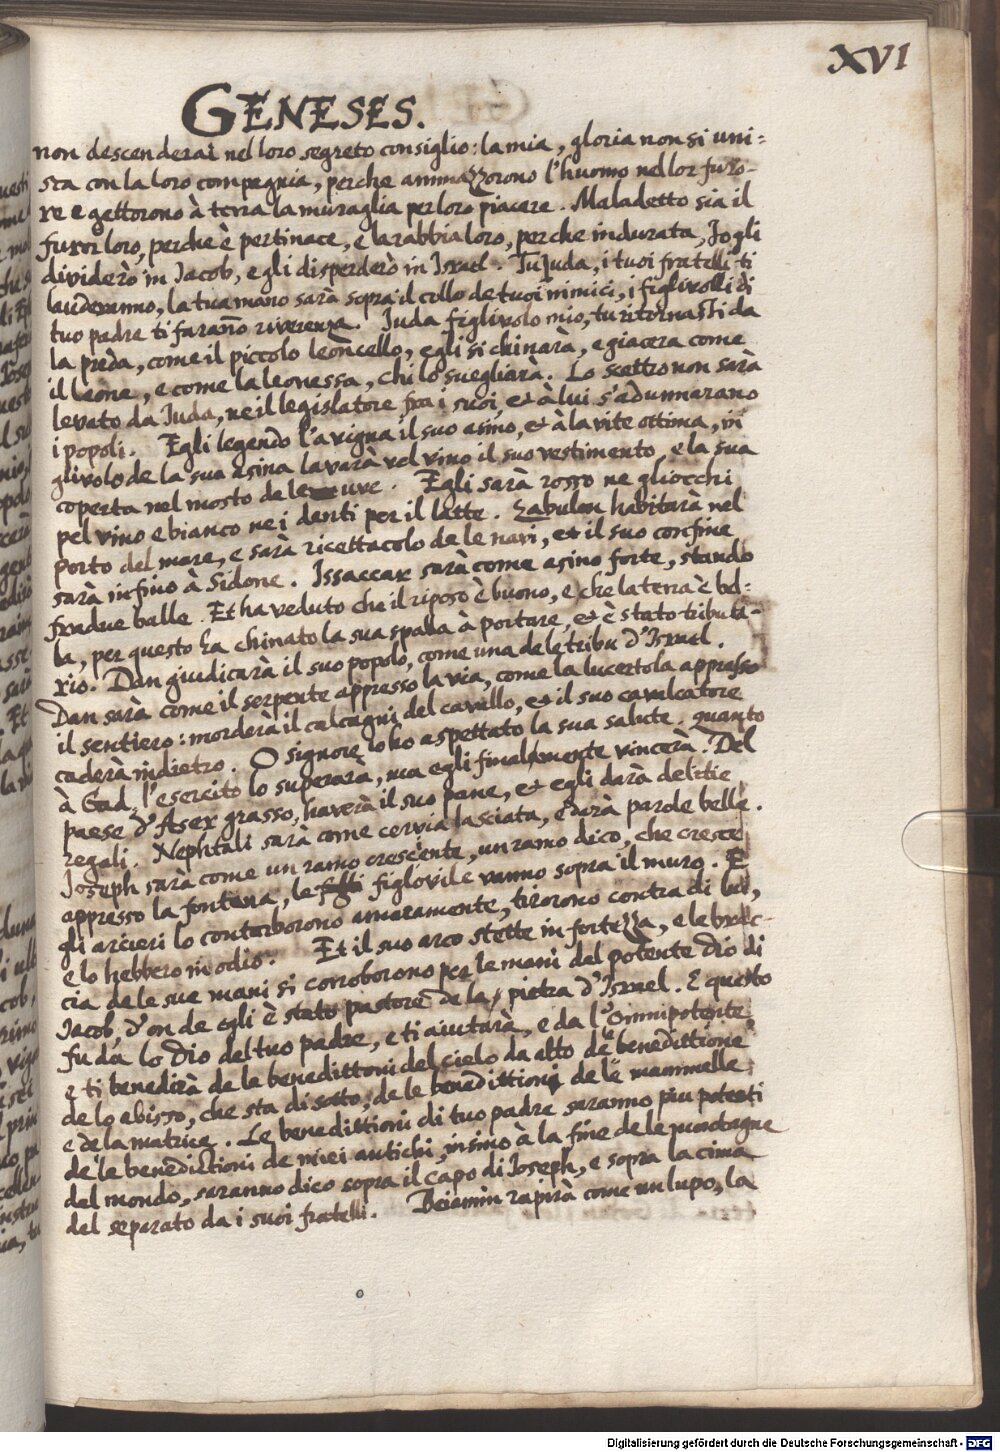 XVI
GENESES.
non descenderai nel loro segreto consiglio: la mia, gloria non si uni=
sta con la loro compagnia, perche ammazzorono l'huomo nel lor furo-
re e gettorono à terra la muraglia per loro piacere. Maladetto sia il
furor loro, perche è pertinace, e la rabbia loro, perche indurata, Jo gli
dividerò in Jacob, e gli disperderò in Israel. Tu Juda, i tuoi fratelli ti
lauderanno, la tua mano sarà sopra il collo de tuoi nimici, i figlivolli di
tuo padre ti faranno riverenza. Juda figlivolo mio, tu ritornasti da
la preda, come il piccolo leoncello, egli si chinarà, e giacera come
il leone, e come la leonessa, chi lo svegliarà. Lo scettro non sarà
levato da Juda, ne il legislatore fra i suoi, et à lui s'adunnarano
i popoli. Egli legendo l'a vigna il suo asino, et à la vite ottima, in
glivolo de la sua asina lavarà vel vino il suo vestimento, e la sua
coperta nel mosto de le uve. Egli sarà rosso ne gliocchi
pel vino e bianco ne i denti per il latte. Zabulon habitarà nel
porto del mare, e sarà ricettacolo de le navi, et il suo confine
sarà infino à Sidone. Issaccar sarà come asino forte, stando
fra due balle. Et ha veduto che il riposo è buono, e che la terra è bel=
la, per questo ha chinato la sua spalla à portare, et è stato tributa-
rio. Dan giudicarà il suo popolo, come una de le tribu d'Israel.
Dan sarà come il serpente appresso la via, come la lucertola appresso
il sentiero: morderà il calcagni del cavallo, et il suo cavalcatore
caderà indietro. O signore io ho aspettato la sua salute. quanto
à Gad, l'esercito lo superarà, ma egli finalmente vincerà. Del
paese d'Aser grasso, haverà il suo pane, et egli darà delitie
regali. Nephtali sarà come cervia lasciata, e darà parole belle.
Joseph sarà come un ramo crescente, un ramo dico, che cresce
appresso la fontana, le figlovile vanno sopra il muro. E
gli arcieri lo conturborono amaramente, tirorono contra di lui,
e lo hebbero in odio. Et il suo arco stette in fortezza, e le brac-
cia de le sue mani si corroborono per le mani del potente Dio di
Jacob, d'onde egli è stato pastore de la pietra d'Israel. E questo
fu da lo Dio del tuo padre, e ti aiutarà, e da l'Omnipotente
e ti benedirà de la benedittoni del cielo da alto de le benedittione
de lo abisso, che sta di sotto, de le benedittioni de le mammelle
e de la matrice. Le benedittioni di tuo padre saranno piu potenti
de le benedictioni de miei antichi, insino à la fine de le montagne
del mondo, saranno dico sopra il capo di Joseph, e sopra la cima
del separato da i suoi fratelli. Beiamin rapirà come un lupo, la
Digitalisierung gefördert durch die Deutsche Forschungsgemeinschaft - DFG